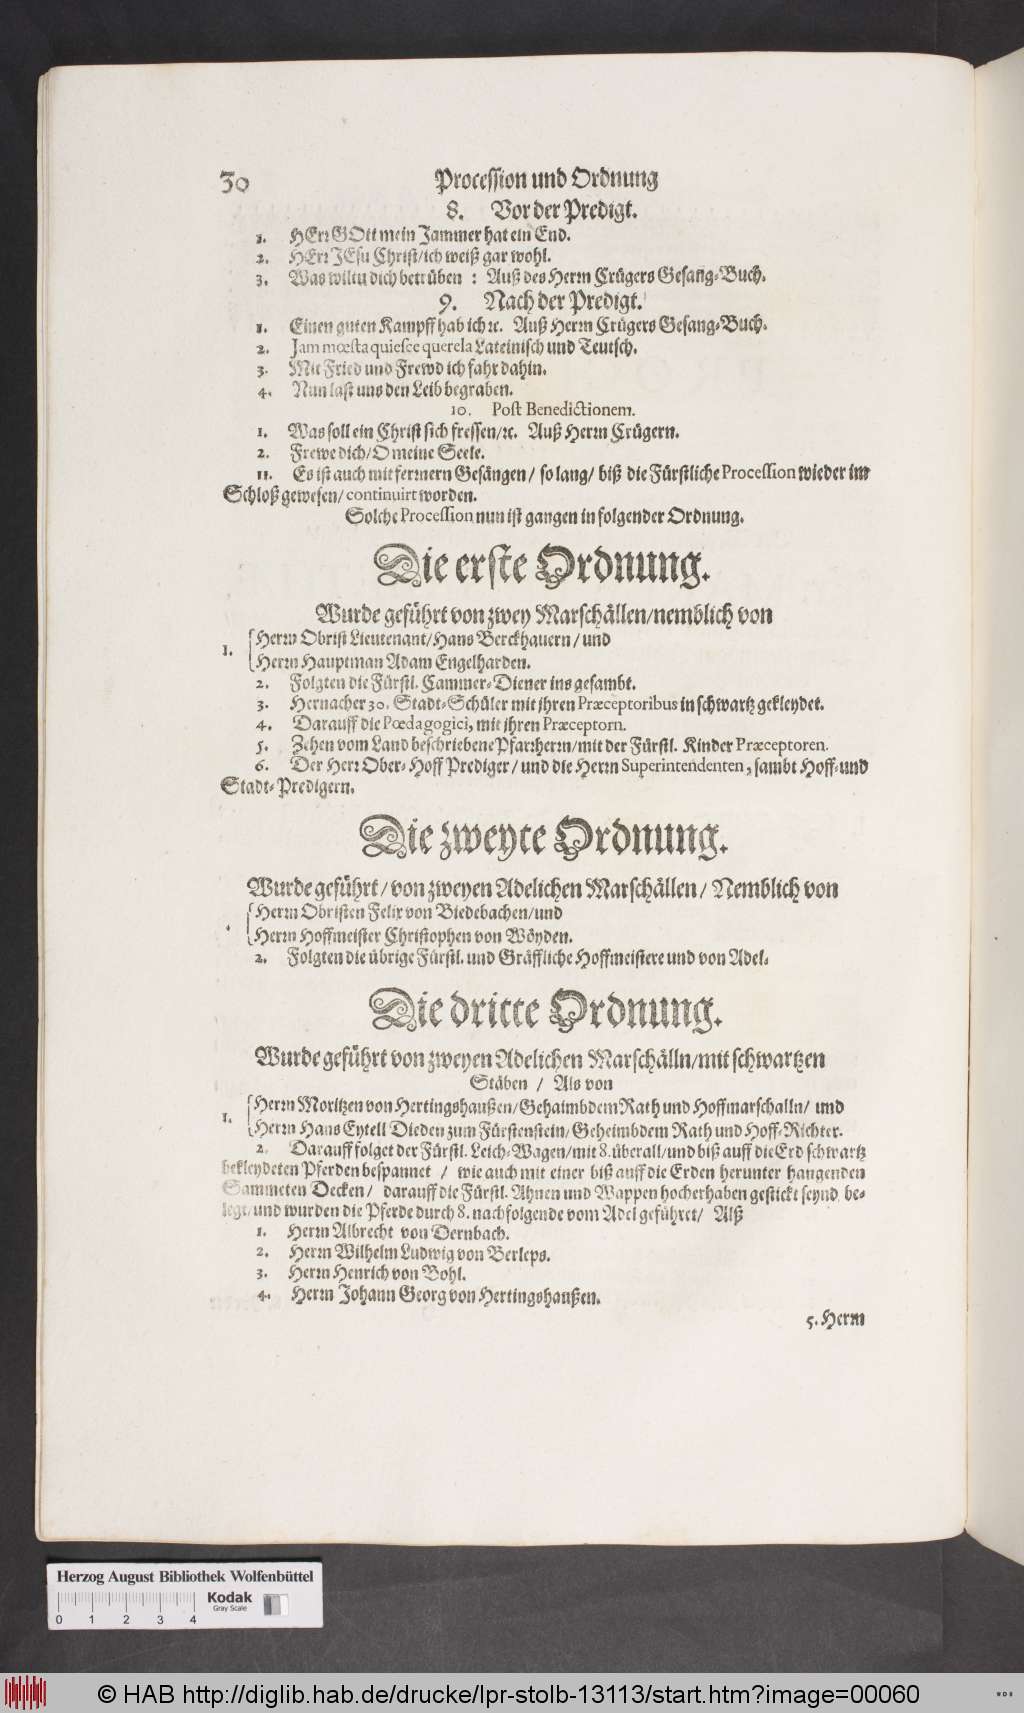 30 Procession und Ordnung
8. Vor der Predigt.
1. HErr GOtt mein Jammer hat ein End.
2. HErr JEsu Christ/ich weiß gar wohl.
3. Was wiltu dich betrüben : Auß des Herrn Crügers Gesang-Buch.
9. Nach der Predigt.
1. Einen guten Kampff hab ich ꝛc. Auß Herrn Crügers Gesang-Buch.
2. Jam mœsta quiesce querela Lateinisch und Teutsch.
3. Mit Fried und Frewd ich fahr dahin.
4. Nun last uns den Leib begraben.
10. Post Benedictionem.
1. Was soll ein Christ sich fressen/ꝛc. Auß Herrn Crügern.
2. Frewe dich/O meine Seele.
11. Es ist auch mit fernern Gesängen/ so lang/ biß die Fürstliche Procession wieder im
Schloß gewesen/ continuirt worden.
Solche Procession nun ist gangen in folgender Ordnung.
Die erste Ordnung.
Wurde geführt von zwey Marschällen/nemblich von
1. Herrn Obrist Lieutenant/Hans Berckhauern/und
Herrn Hauptman Adam Engelharden.
2. Folgten die Fürstl. Cammer-Diener ins gesambt.
3. Hernacher 30. Stadt-Schüler mit ihren Præceptoribus in schwartz gekleydet.
4. Darauff die Pœdagogici, mit ihren Præceptorn.
5. Zehen vom Land beschriebene Pfarrherrn/mit der Fürstl. Kinder Præceptoren.
6. Der Herr Ober-Hoff Prediger/ und die Herrn Superintendenten, sambt Hoff-und
Stadt-Predigern.
Die zweyte Ordnung.
Wurde geführt/ von zweyen Adelichen Marschällen/ Nemblich von
Herrn Obristen Felix von Biedebachen/und
Herrn Hoffmeister Christophen von Wöyden.
2. Folgten die übrige Fürstl. und Gräffliche Hoffmeistere und von Adel.
Die dritte Ordnung.
Wurde geführt von zweyen Adelichen Marschälln/mit schwartzen
Stäben / Als von
1. Herrn Moritzen von Hertingshaußen/Gehaimbdem Rath und Hoffmarschalln/ und
Herrn Hans Eytell Dieden zum Fürstenstein/Geheimbdem Rath und Hoff-Richter.
2. Darauff folget der Fürstl. Leich-Wagen/mit 8. überall/und biß auff die Erd schwartz
bekleydeten Pferden bespannet / wie auch mit einer biß auff die Erden herunter hangenden
Sammeten Decken/ darauff die Fürstl. Ahnen und Wappen hocherhaben gestickt seynd, be-
legt/und wurden die Pferde durch 8. nachfolgende vom Adel geführet/ Alß
1. Herrn Albrecht von Dernbach.
2. Herrn Wilhelm Ludwig von Berleps.
3. Herrn Henrich von Bohl.
4. Herrn Johann Georg von Hertingshaußen.
5. Herrn
Herzog August Bibliothek Wolfenbüttel
Kodak
Gray Scale
0 1 2 3 4
© HAB http://diglib.hab.de/drucke/lpr-stolb-13113/start.htm?image=00060